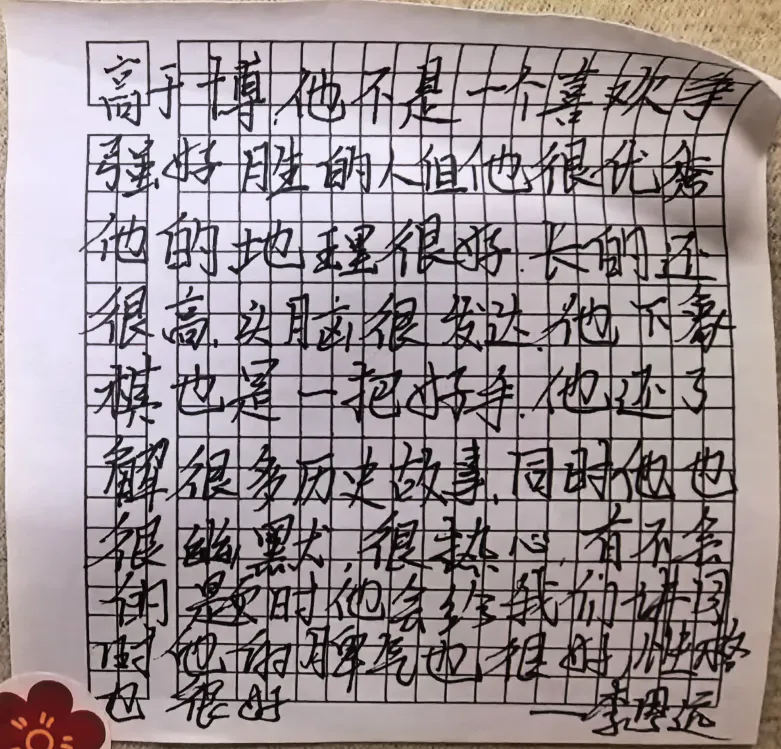 高于博,他不是一个喜欢争
强好胜的人但他很优秀
他的地理很好.长的还
很高,头脑很发达.他下
棋也是一把好手.他还了
解很多历史故事,同时他也
很幽默,很热心,有不会
的题时他会给我们讲同
时他的脾气也很好,性格
也很好 ——李思远